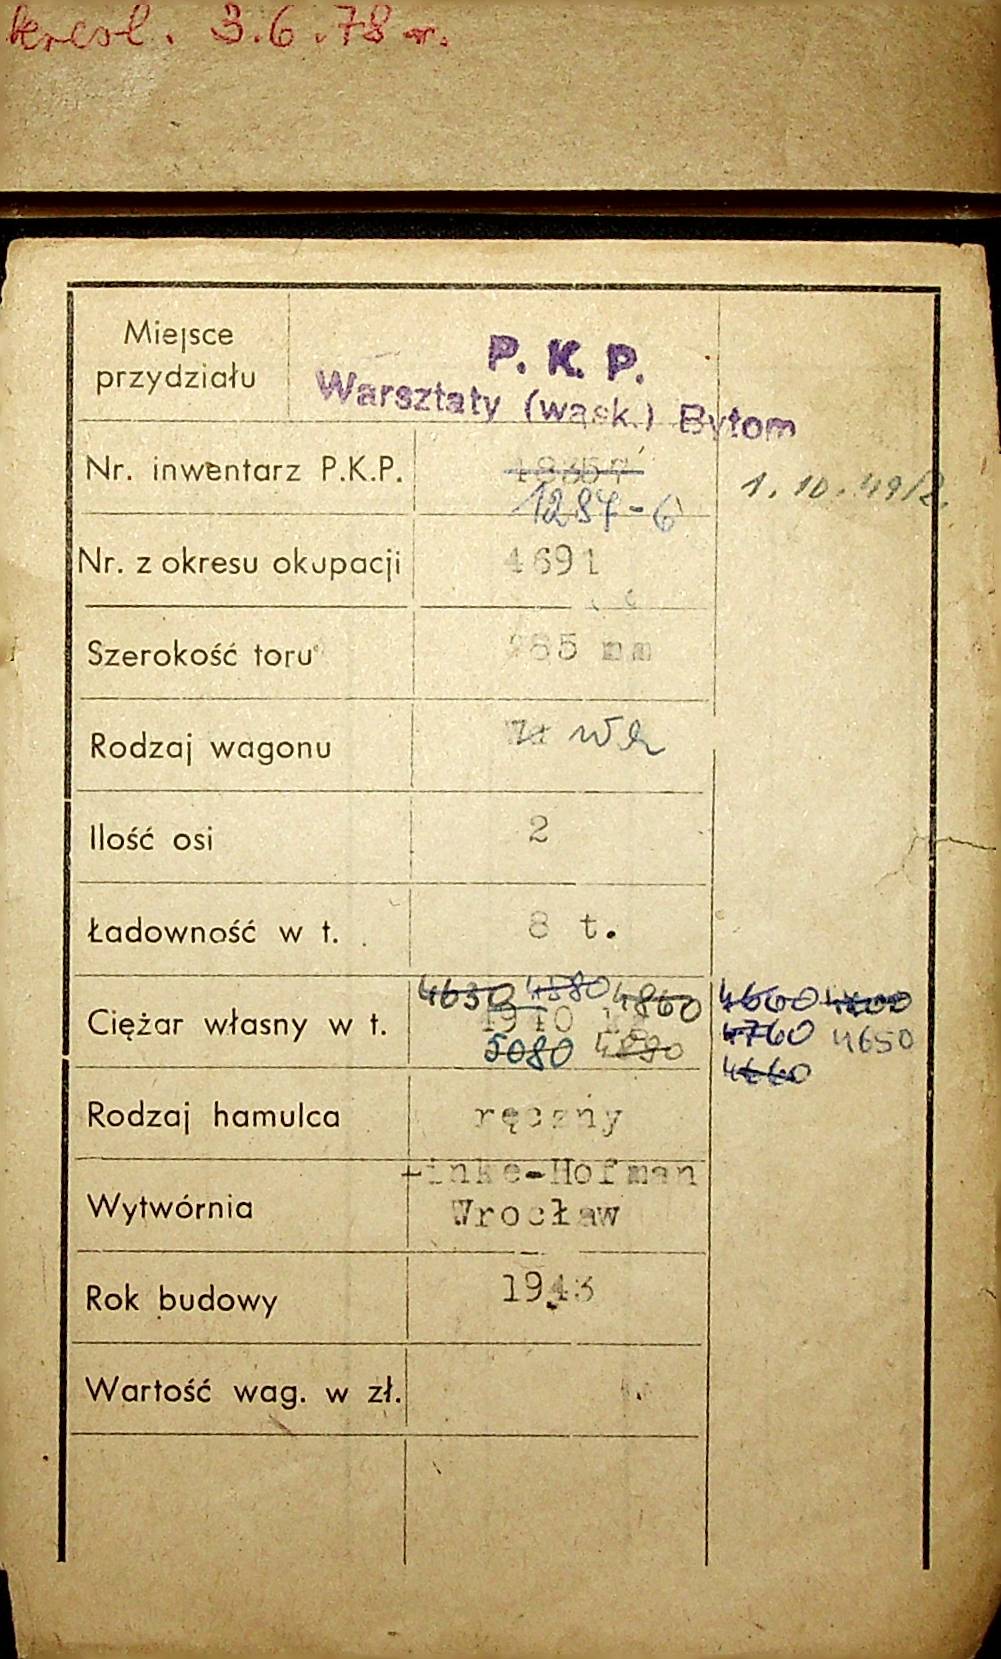 kresl. 3.6.78 r.
Miejsce
przydziału
P. K. P.
Warsztaty (wąsk.) Bytom
Nr. inwentarz P.K.P.
1287-6
1.10.49/2.
Nr. z okresu okupacji
4691
Szerokość toru
785 mm
Rodzaj wagonu
Wk
Ilość osi
2
Ładowność w t.
8 t.
4630 4580 4860
4600
Ciężar własny w t.
4760 4650
5080
4660
Rodzaj hamulca
ręczny
Wytwórnia
Linke-Hofman
Wrocław
Rok budowy
1943
Wartość wag. w zł.